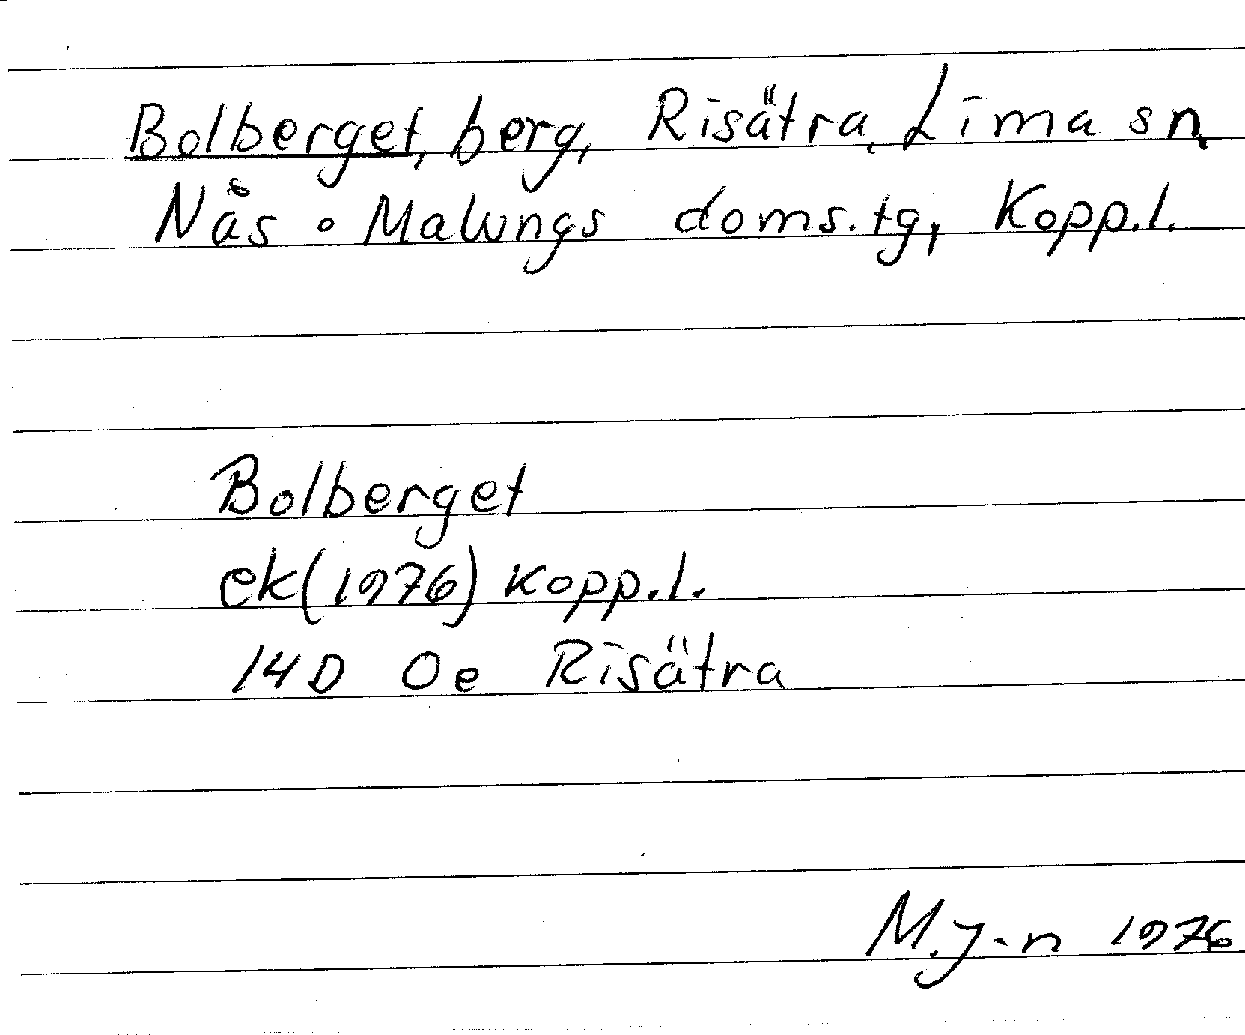 Bolberget, berg, Risätra, Lima sn,
Nås o Malungs doms.tg, Kopp.l.
Bolberget
ek(1976) Kopp.l.
14D 0e Risätra
M.J-n 1976